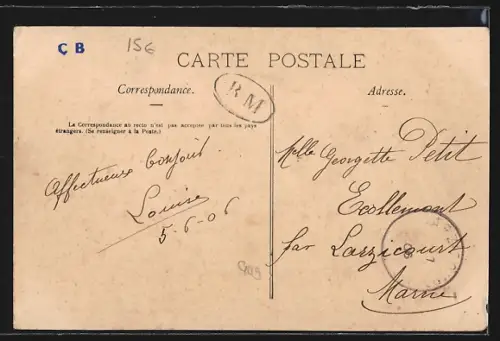 C B
15€
CARTE POSTALE
Correspondance.
BM
Adresse.
La Correspondance au recto n'est pas acceptée par tous les pays
étrangers. (Se renseigner à la Poste.)
Affectueux bonjour.
Louise
5-6-06
Melle Georgette Petit
Ecollemont
par Larzicourt
Marne